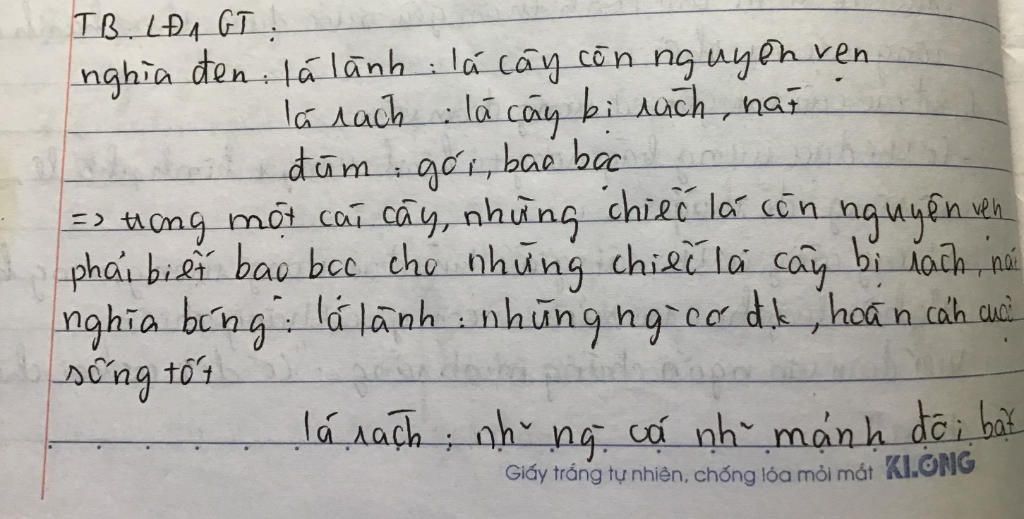 TB. LĐ1 GT:
nghĩa đen: lá lành: lá cây còn nguyên vẹn
lá rách: lá cây bị rách, nát
đùm: gói, bao bọc
=> trong một cái cây, những chiếc lá còn nguyên vẹn
phải biết bao bọc cho những chiếc lá cây bị rách, nát
nghĩa bóng: lá lành: những ng~ có đ.k, hoàn cảnh cuộc
sống tốt
lá rách: nh~ ng~ có nh~ mảnh đời bất
Giấy trắng tự nhiên, chống lóa mỏi mắt KLONG